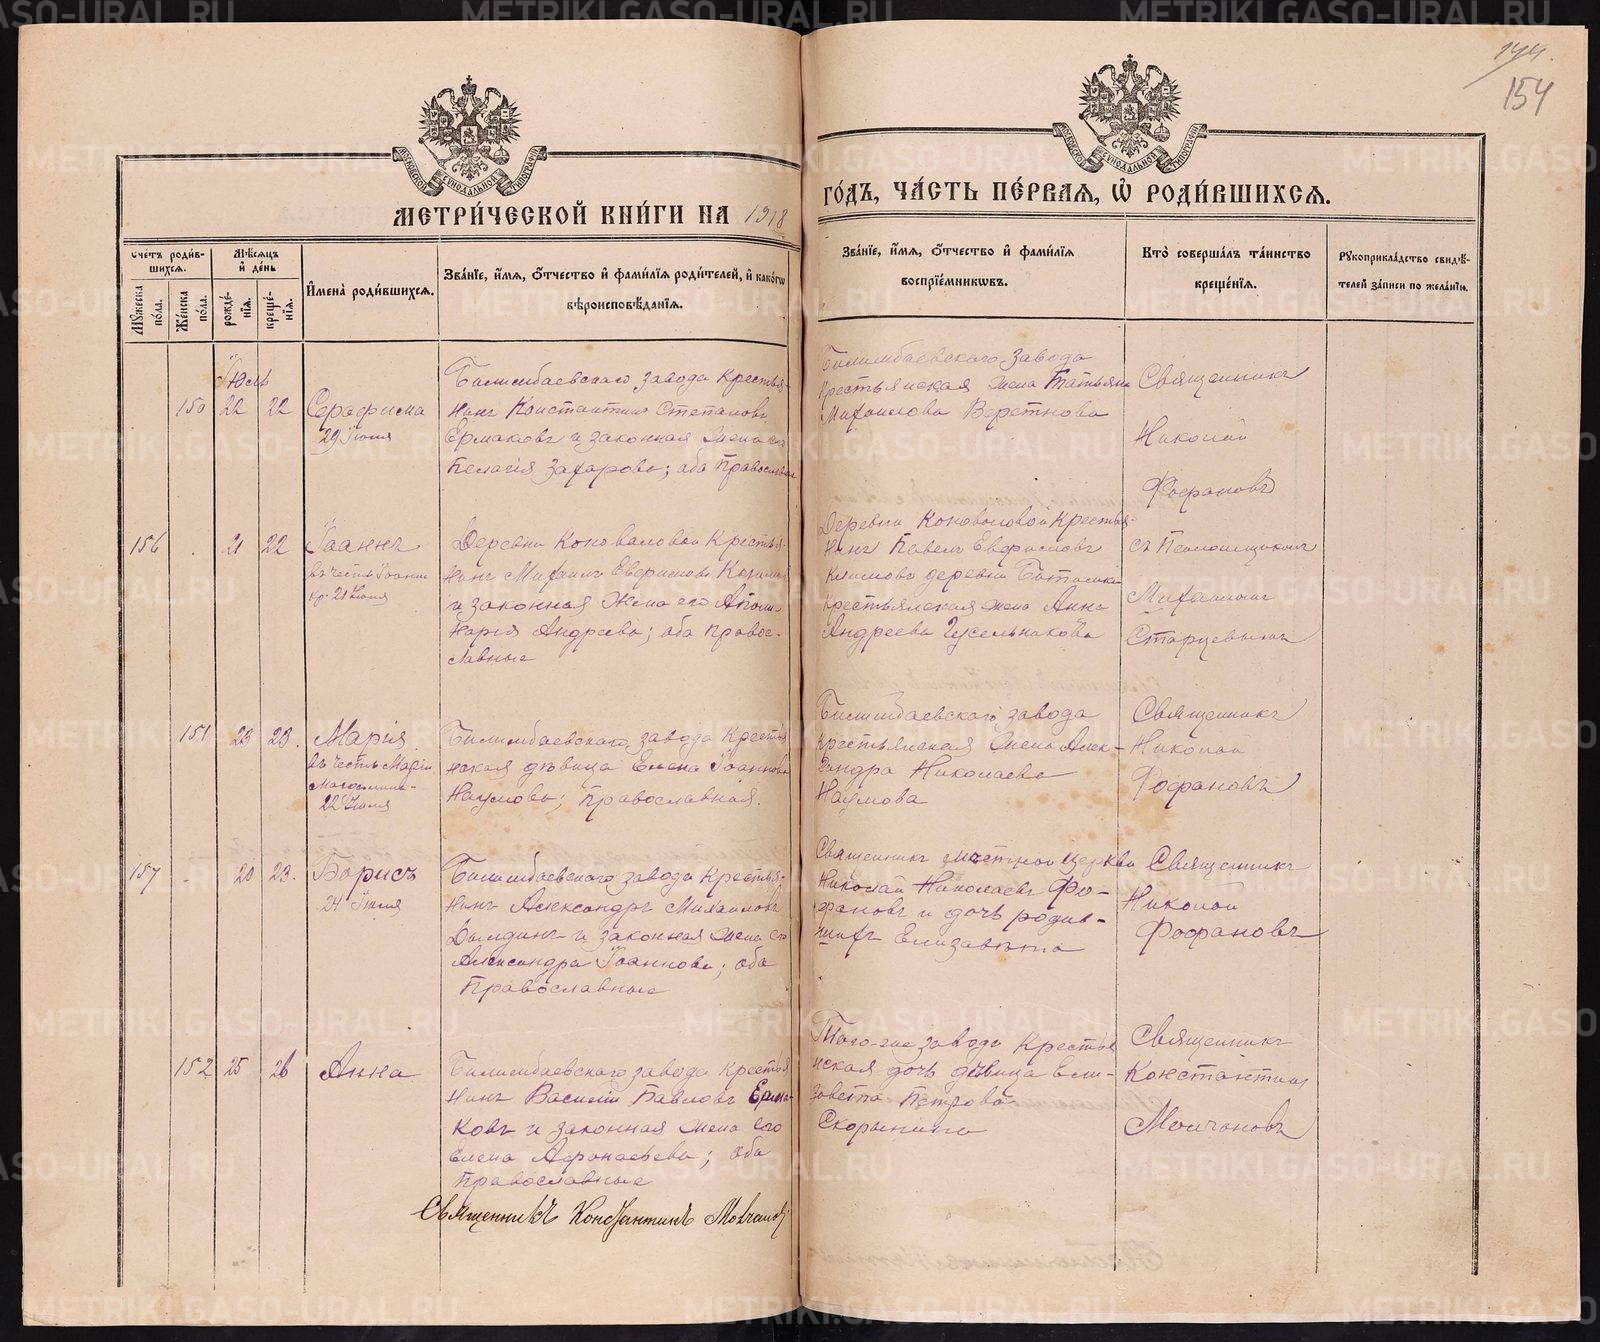 144.
154
МОСКОВСКОЙ СѴНОДАЛЬНОЙ ТИПОГРАФІИ
МОСКОВСКОЙ СѴНОДАЛЬНОЙ ТИПОГРАФІИ
МЕТРИ́ЧЕСКОЙ КНИ́ГИ НА 1918
ГО́ДЪ, ЧА́СТЬ ПЕ́РВАЯ, Ѡ҆ РОДИ́ВШИХСЯ.
Счетъ роди́в-
шихся.
Мужеска по́ла.
Же́нска по́ла.
Мѣ́сяцъ
и҆ де́нь
рожде́-
нїя.
креще́-
нїя.
И҆мена̀ роди́вшихся.
Зва́нїе, и҆́мя, ѻ҆́тчество и҆ фами́лїя роди́телей, и҆ како́гѡ
вѣроисповѣ́данїя.
Зва́нїе, и҆́мя, ѻ҆́тчество и҆ фами́лїя
воспрїе́мниковъ.
Кто̀ соверша́лъ та́инство
креще́нїя.
Рукоприкла́дство свидѣ́-
телей за́писи по жела́нїю.
Іюль
150 22 22
Серафима
29 Іюля
Билимбаевскаго завода крестья-
нинъ Константинъ Степановъ
Ермаковъ и законная жена его
Пелагія Захарова; оба Православные
Билимбаевскаго завода
крестьянская жена Татьяна
Михаилова Веретнова
Священникъ
Николай
Фофановъ
156 21 22
Іоаннъ
въ честь Іоанна
21 Іюля
Деревни Коноваловой крестья-
нинъ Михаилъ Евфимовъ
и законная жена его Аполи-
нарія Андреева; оба Правос-
лавные
Деревни Коноваловой крестья-
нинъ Павелъ
деревни
крестьянская жена Анна
Андреева Гусельникова
съ Псаломщикомъ
Михаиломъ
Старцевымъ
151 23 23.
Марія
въ честь Маріи
Магдалины
22 Іюля
Билимбаевскаго завода крестья-
нская дѣвица Елена Іоаннова
Наумова; Православная.
Билимбаевскаго завода
крестьянская жена Алек-
сандра Николаева
Наумова
Священникъ
Николай
Фофановъ
157 20 23.
Борисъ
24 Іюля
Билимбаевскаго завода крестья-
нинъ Александръ Михаиловъ
Дылдинъ и законная жена его
Александра Іоаннова; оба
Православные
Священникъ мѣстной церкви
Николай Николаевъ Фо-
фановъ и дочь родив-
шихъ Елизавета
Священникъ
Николай
Фофановъ
152 25 26
Анна
Билимбаевскаго завода крестья
нинъ Василій Павловъ Ерма-
ковъ и законная жена его
Елена Афанасьева; оба
Православные
Того-же завода крестья
нская дочь дѣвица Ели-
завета Петрова
Скорынина
Священникъ
Константинъ
Молчановъ
Священникъ Константинъ Молчановъ
METRIKI.GASO-URAL.RU